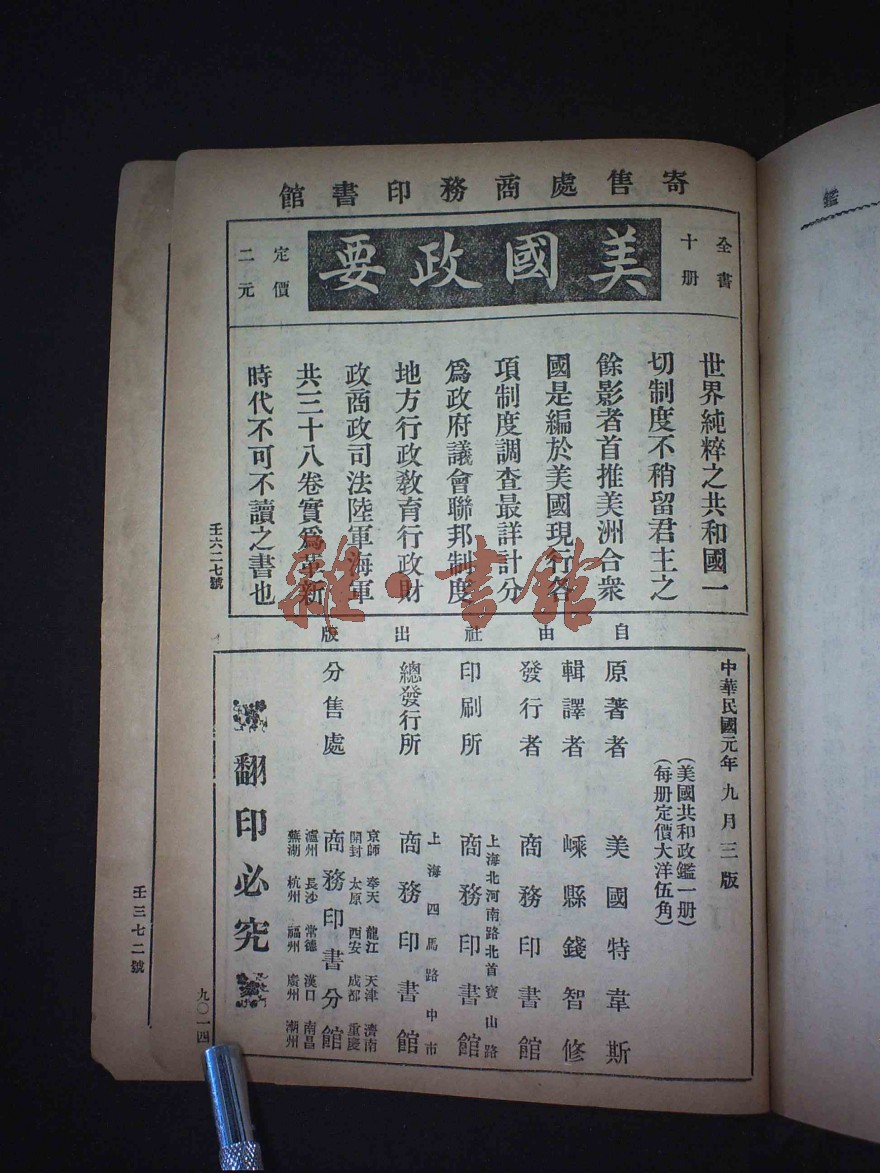 寄售處商務印書館
全書
十册
美國政要
定價
二元
世界純粹之共和國一
切制度不稍留君主之
餘影者首推美洲合衆
國是編於美國現行各
項制度調查最詳計分
爲政府議會聯邦制度
地方行政敎育行政財
政商政司法陸軍海軍
共三十八卷實爲革新
時代不可不讀之書也
壬六二七號
自由社出版
中華民國元年九月三版
(美國共和政鑑一册)
(每册定價大洋伍角)
原著者 美國特韋斯
輯譯者 嵊縣錢智修
發行者 商務印書館
上海北河南路北首寶山路
印刷所 商務印書館
上海四馬路中市
總發行所 商務印書館
京師 奉天 龍江 天津 濟南
開封 太原 西安 成都 重慶
分售處 商務印書分館
瀘州 長沙 常德 漢口 南昌
蕪湖 杭州 福州 廣州 潮州
翻印必究
九〇一四
壬三七二號
鑑
雜·書館